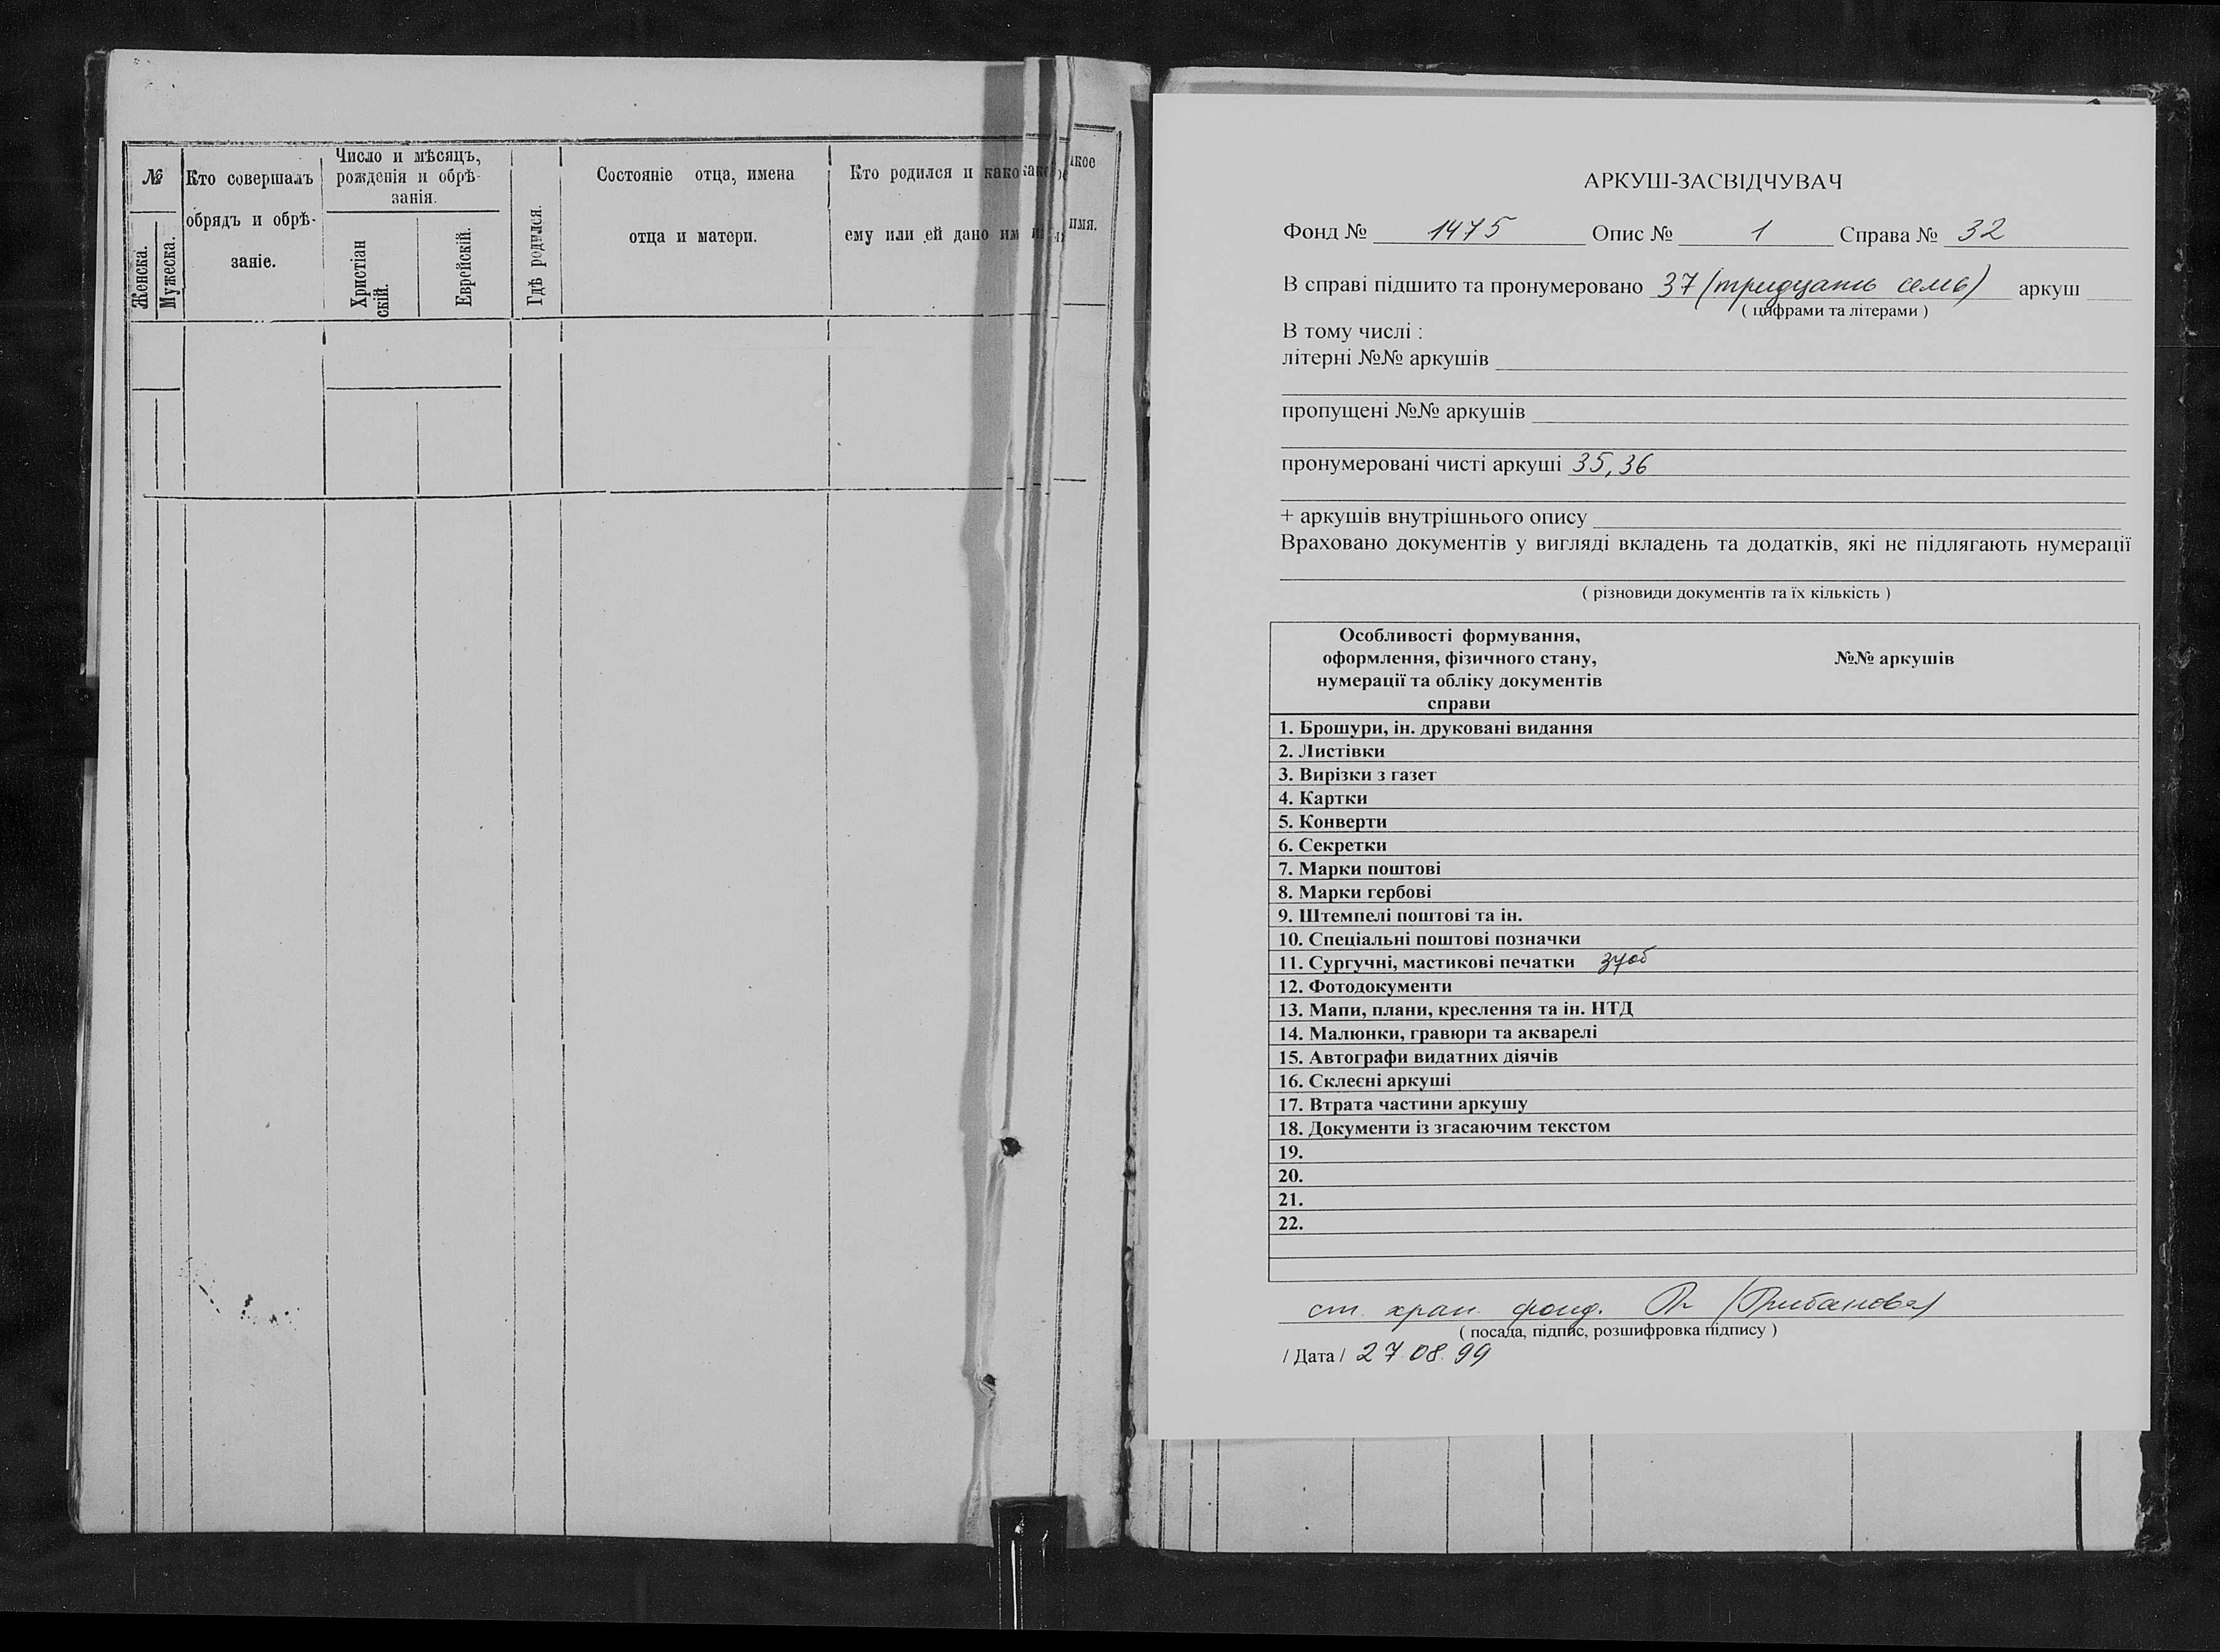 №
Женска.
Мужеска.
Кто совершалъ
обрядъ и обрѣ-
заніе.
Число и мѣсяцъ,
рожденія и обрѣ-
занія.
Христіан
скій.
Еврейскій.
Гдѣ родился.
Состояніе отца, имена
отца и матери.
Кто родился и како
ему или ей дано им
имя.
АРКУШ-ЗАСВІДЧУВАЧ
Фонд № 1475 Опис № 1 Справа № 32
В справі підшито та пронумеровано 37 (тридцать семь) аркуш
( цифрами та літерами )
В тому числі :
літерні №№ аркушів
пропущені №№ аркушів
пронумеровані чисті аркуші 35, 36
+ аркушів внутрішнього опису
Враховано документів у вигляді вкладень та додатків, які не підлягають нумерації
( різновиди документів та їх кількість )
Особливості формування,
оформлення, фізичного стану,
нумерації та обліку документів
справи
№№ аркушів
1. Брошури, ін. друковані видання
2. Листівки
3. Вирізки з газет
4. Картки
5. Конверти
6. Секретки
7. Марки поштові
8. Марки гербові
9. Штемпелі поштові та ін.
10. Спеціальні поштові позначки
11. Сургучні, мастикові печатки 37об
12. Фотодокументи
13. Мапи, плани, креслення та ін. НТД
14. Малюнки, гравюри та акварелі
15. Автографи видатних діячів
16. Склеєні аркуші
17. Втрата частини аркушу
18. Документи із згасаючим текстом
19.
20.
21.
22.
ст. хран. фонд.
( посада, підпис, розшифровка підпису )
/ Дата / 27.08.99